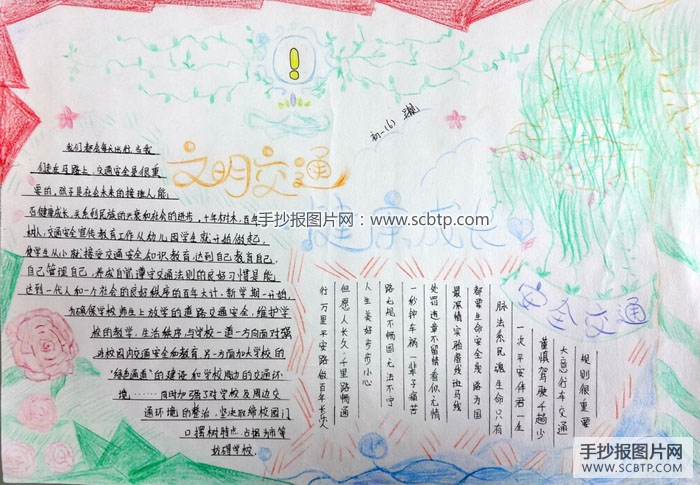 手抄报图片网：www.scbtp.com
初一(6)
文明交通
健康成长
安全交通
我们都会每天出行,当我
们走在马路上,交通安全是很重
要的,孩子是社会未来的接班人,能
否健康成长,关系到民族的兴衰和社会的进步,十年树木,百年
树人,交通安全宣传教育工作从幼儿园学生就开始做起,
使学生从小就接受交通安全知识教育,达到自己教育自己,
自己管理自己,养成自觉遵守交通法则的良好习惯是能
达到一代人和一个社会的良好秩序的百年大计,新学期一开始,
为确保学校师生上放学的道路交通安全,维护学
校的教学、生活秩序,与学校一道一方面对强
对校园内交通安全和教育,另一方面加大学校的
“绿色通道”的建设和学校周边的交通环
境……同时加强了对学校及周边交
通环境的整治,坚决取缔校园门
口摆
妨碍学校.
规则很重要
大意行车交通
董慎驾驶千趟少
一次平安伴君一生
脉法系民魂生命只有
都要生命安全是路为国
最深情实验廊线斑马线
处罚违章不留情看似无情
一秒钟车祸一辈子痛苦
路无规不畅国无法不宁
人生美好步步小心
但愿人长久千里路畅通
行万里平安路做百年长乐人
手抄报图片网
WWW.SCBTP.COM